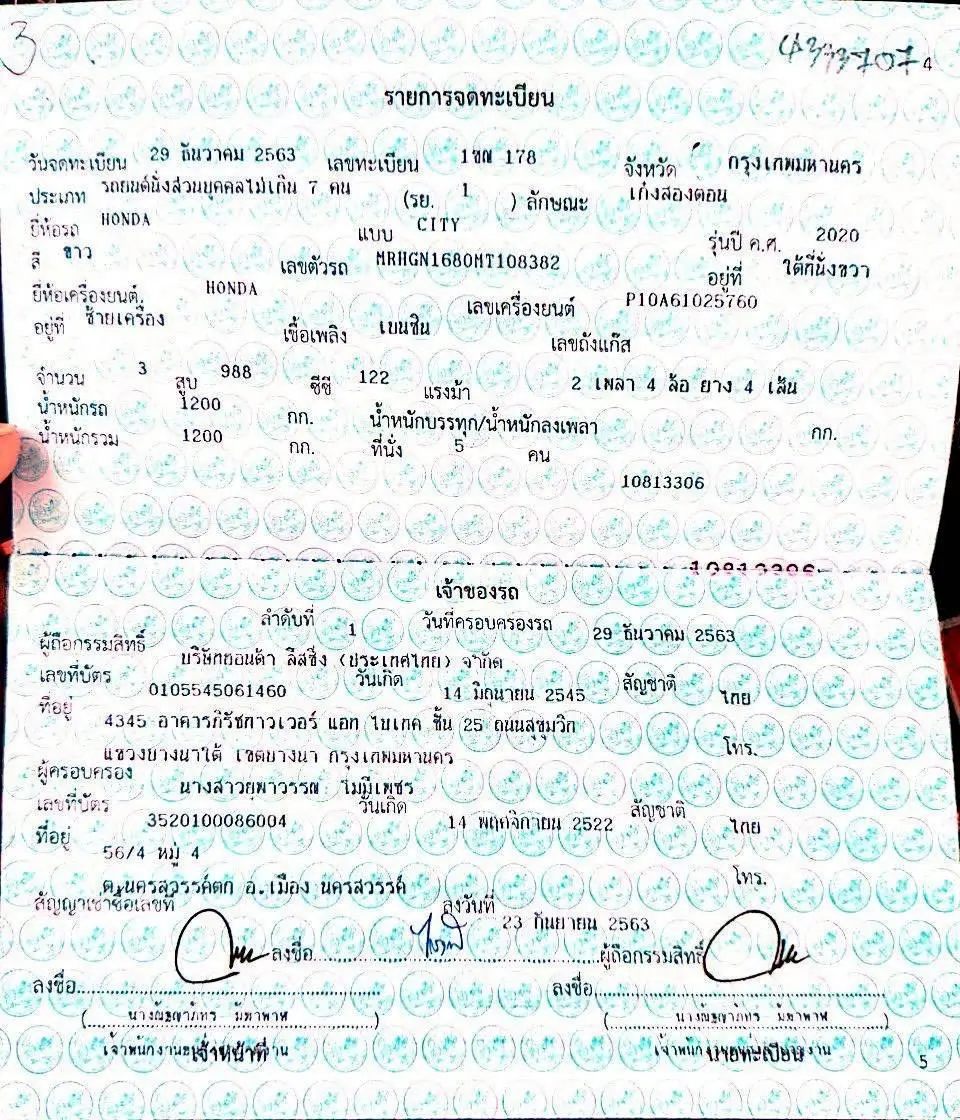 3
4
รายการจดทะเบียน
วันจดทะเบียน 29 ธันวาคม 2563 เลขทะเบียน 1ขฌ 178 จังหวัด กรุงเทพมหานคร
ประเภท รถยนต์นั่งส่วนบุคคลไม่เกิน 7 คน (รย. 1 ) ลักษณะ เก๋งสองตอน
ยี่ห้อรถ HONDA แบบ CITY รุ่นปี ค.ศ. 2020
สี ขาว เลขตัวรถ MRHGN1680MT108382 อยู่ที่ ใต้ที่นั่งขวา
ยี่ห้อเครื่องยนต์ HONDA เลขเครื่องยนต์ P10A61025760
อยู่ที่ ซ้ายเครื่อง เชื้อเพลิง เบนซิน เลขถังแก๊ส
จำนวน 3 สูบ 988 ซีซี 122 แรงม้า 2 เพลา 4 ล้อ ยาง 4 เส้น
น้ำหนักรถ 1200 กก. น้ำหนักบรรทุก/น้ำหนักลงเพลา กก.
น้ำหนักรวม 1200 กก. ที่นั่ง 5 คน
10813306
10813306
เจ้าของรถ
ลำดับที่ 1 วันที่ครอบครองรถ 29 ธันวาคม 2563
ผู้ถือกรรมสิทธิ์ บริษัทฮอนด้า ลีสซิ่ง (ประเทศไทย) จำกัด
เลขที่บัตร 0105545061460 วันเกิด 14 มิถุนายน 2545 สัญชาติ ไทย
ที่อยู่ 4345 อาคารภิรัชทาวเวอร์ แอท ไบเทค ชั้น 25 ถนนสุขุมวิท
แขวงบางนาใต้ เขตบางนา กรุงเทพมหานคร โทร.
ผู้ครอบครอง นางสาวยุพาวรรณ โมมีเพชร
เลขที่บัตร 3520100086004 วันเกิด 14 พฤศจิกายน 2522 สัญชาติ ไทย
ที่อยู่ 56/4 หมู่ 4
ต.นครสวรรค์ตก อ.เมือง นครสวรรค์ โทร.
สัญญาเช่าซื้อเลขที่ ลงวันที่ 23 กันยายน 2563
ลงชื่อ ผู้ถือกรรมสิทธิ์
ลงชื่อ ลงชื่อ
เจ้าหน้าที่ นายทะเบียน
5